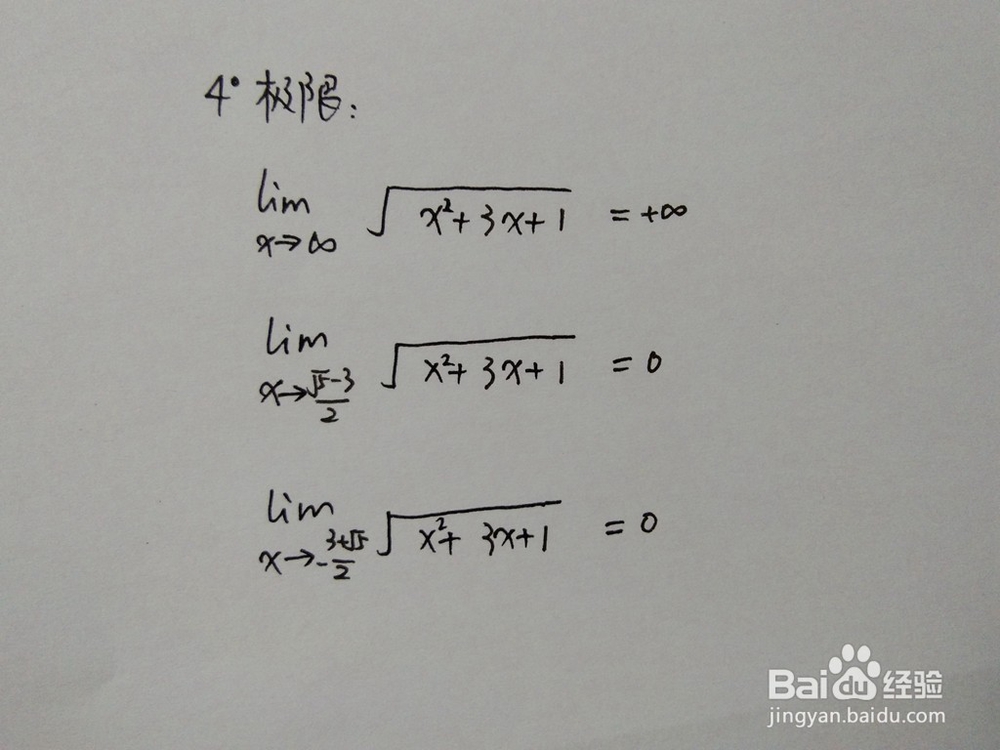 4° 极限:
lim x→∞ √(x²+3x+1) = +∞
lim x→(√5-3)/2 √(x²+3x+1) = 0
lim x→-(3+√5)/2 √(x²+3x+1) = 0
Baidu 经验
jingyan.baidu.com